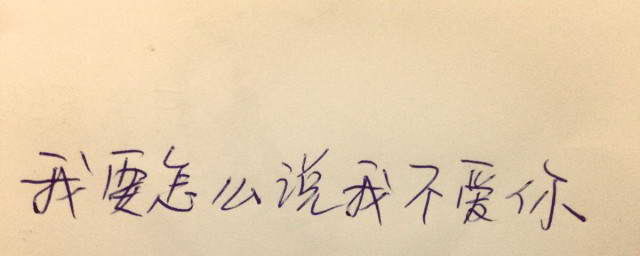 我要怎么说我不爱你